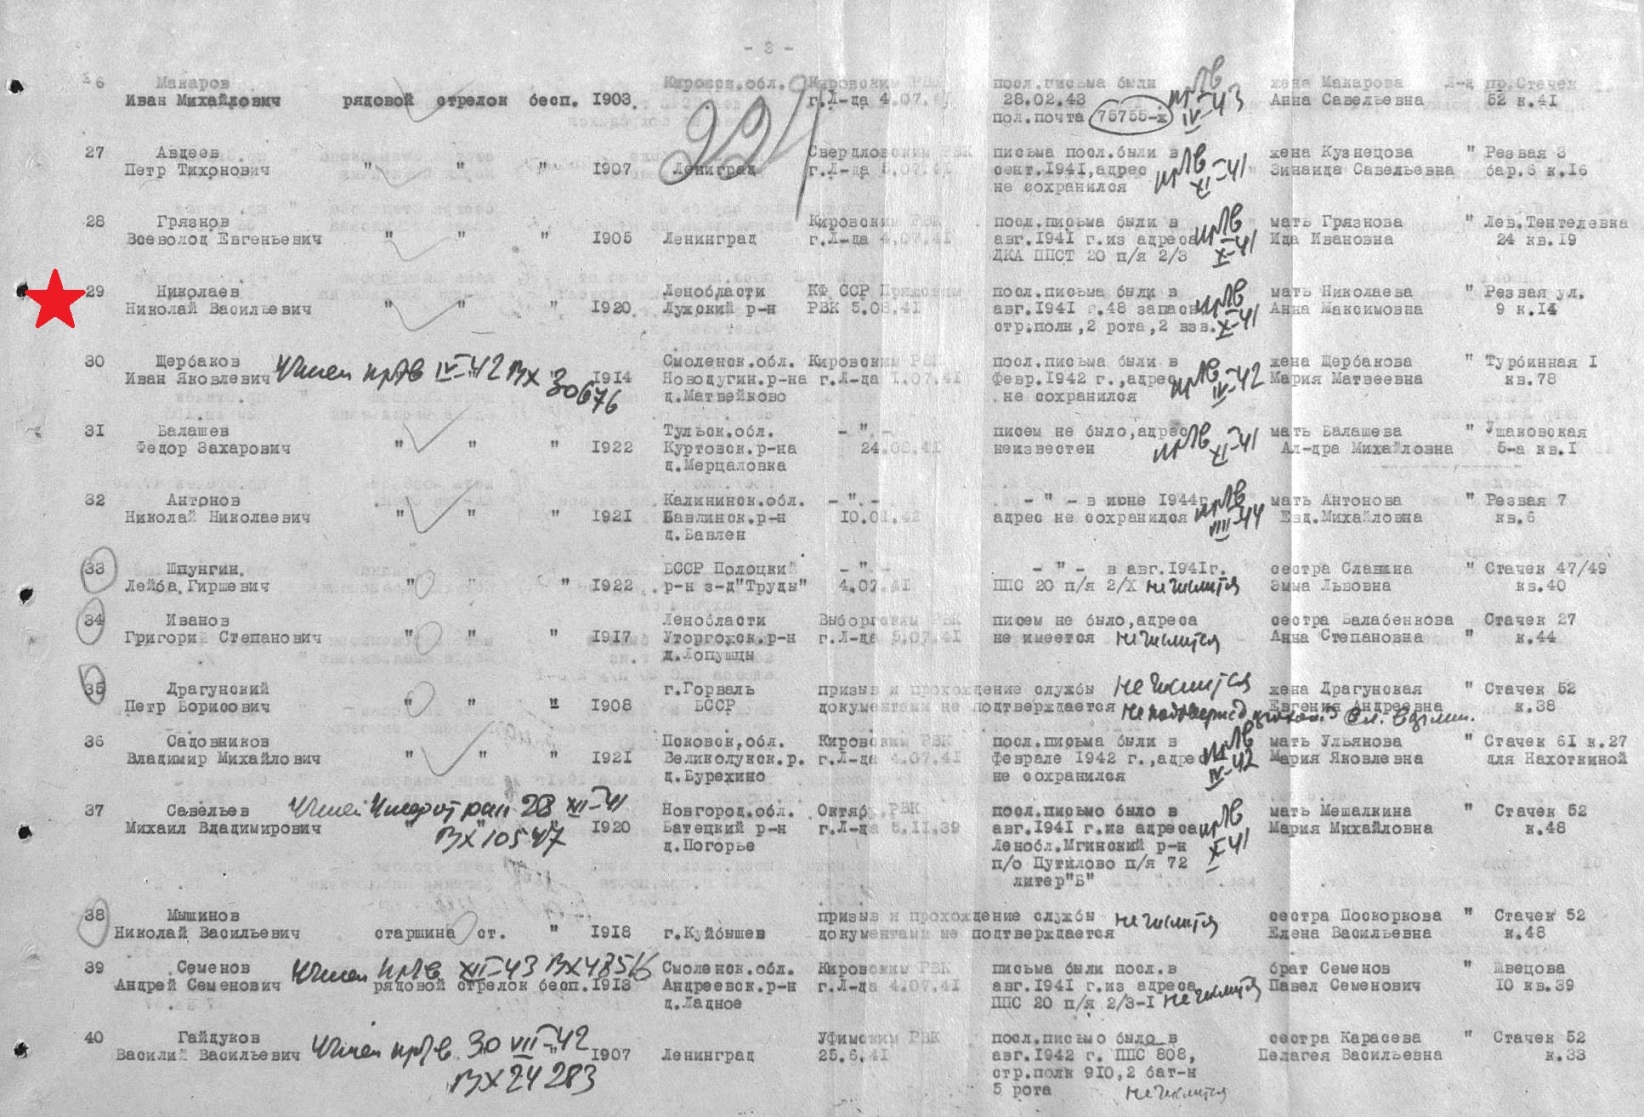 - 3 -
26 Макаров Кировск.обл. Кировским РВК посл.письма были прпв жена Макарова Л-д пр.Стачек
Иван Михайлович рядовой стрелок бесп. 1903. г.Л-да 4.07.41 28.02.43 IV-43 Анна Савельевна 52 к.41
пол.почта 75755-х
224
27 Авдеев Свердловским РВК письма посл.были в прпв жена Кузнецова " Резвая 3
Петр Тихонович " " " 1907 Ленинград г.Л-да 5.07.41 сент.1941,адрес XI-41 Зинаида Савельевна бар.6 к.16
не сохранился
28 Грязнов Кировским РВК посл.письма были в прпв мать Грязнова " Лев.Тентелевка
Всеволод Евгеньевич " " " 1905 Ленинград г.Л-да 4.07.41 авг.1941 г.из адреса X-41 Ида Ивановна 24 кв.19
ДКА ППСТ 20 п/я 2/3
29 Николаев Ленобласти КФ ССР Пряжским посл.письма были в прпв мать Николаева " Резвая ул.
Николай Васильевич " " " 1920 Лужский р-н РВК 5.08.41 авг.1941 г.48 запасн. X-41 Анна Максимовна 9 к.14
стр.полк,2 рота,2 взв.
30 Щербаков Смоленск.обл. Кировским РВК посл.письма были в прпв жена Щербакова " Турбинная 1
Иван Яковлевич Учтен прпв IV-42 Вх 30676 " 1914 Новодугин.р-на г.Л-да 1.07.41 февр.1942 г.,адрес IV-42 Мария Матвеевна кв.78
д.Матвейково не сохранился
31 Балашев Тульск.обл. - " - писем не было,адрес прпв мать Балашева " Ушаковская
Федор Захарович " " " 1922 Куртовск.р-на 24.08.41 неизвестен XI-41 Ал-дра Михайловна 5-а кв.1
д.Мерцаловка
32 Антонов Калининск.обл. - " - - " - в июне 1944г. прпв мать Антонова " Резвая 7
Николай Николаевич " " " 1921 Бавлинск.р-н 10.01.42 адрес не сохранился VIII-44 Евд.Михайловна кв.6
д.Бавлен
33 Шпунгин, БССР Полоцкий - " - - " - в авг.1941г. сестра Славина " Стачек 47/49
Лейба Гиршевич " " " 1922 р-н з-д"Труды" 4.07.41 ППС 20 п/я 2/Х не числится Эмма Львовна кв.40
34 Иванов Ленобласти Выборгским РВК писем не было,адреса сестра Балабенкова Стачек 27
Григори Степанович " " " 1917 Уторгожск.р-н г.Л-да 5.07.41 не имеется не числится Анна Степановна " к.44
д.Лопушцы
35 Драгунский г.Горваль призыв и прохождение службы не числится жена Драгунская " Стачек 52
Петр Борисович " " " 1908 БССР документами не подтверждается Евгения Андреевна к.38
36 Садовников Псковск,обл. Кировским РВК посл.письма были в прпв мать Ульянова " Стачек 61 к.27
Владимир Михайлович " " " 1921 Великолукск.р. г.Л-да 4.07.41 феврале 1942 г.,адрес IV-42 Мария Яковлевна для Нахоткиной
д.Бурехино не сохранился
37 Савельев Учтен умер от ран 28 XII-41 Новгород.обл. Октяб.РВК посл.письмо было в прпв мать Мешалкина " Стачек 52
Михаил Владимирович Вх 10547 " 1920 Батецкий р-н г.Л-да 5.11.39 авг.1941 г.из адреса X-41 Мария Михайловна к.48
д.Погорье Ленобл.Мгинский р-н
п/о Путилово п/я 72
литер"Б"
38 Мышинов призыв и прохождение службы не числится сестра Поскоркова " Стачек 52
Николай Васильевич старшина ст. " 1918 г.Куйбышев документами не подтверждается Елена Васильевна к.48
39 Семенов Учтен прпв XII-43 Вх 48516 Смоленск.обл. Кировским РВК письма были посл.в брат Семенов " Швецова
Андрей Семенович рядовой стрелок бесп.1913 Андреевск.р-н г.Л-да 4.07.41 авг.1941 г.из адреса Павел Семенович 10 кв.39
д.Ладное ППС 20 п/я 2/3-1 не числится
40 Гайдуков Учтен прпв 30 VII-42 Уфимским РВК посл.письмо было в сестра Карасева " Стачек 52
Василий Васильевич Вх 24283 " 1907 Ленинград 25.6.41 авг.1942 г. ППС 808, Пелагея Васильевна к.33
стр.полк 910,2 бат-н
5 рота не числится